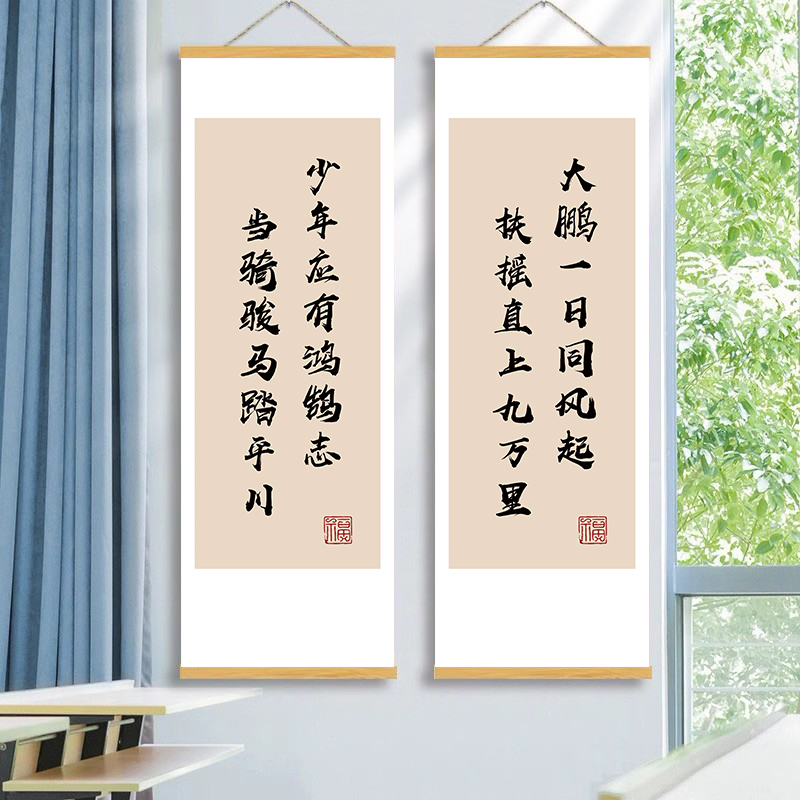 大鹏一日同风起
扶摇直上九万里
福
少年应有鸿鹄志
当骑骏马踏平川
福